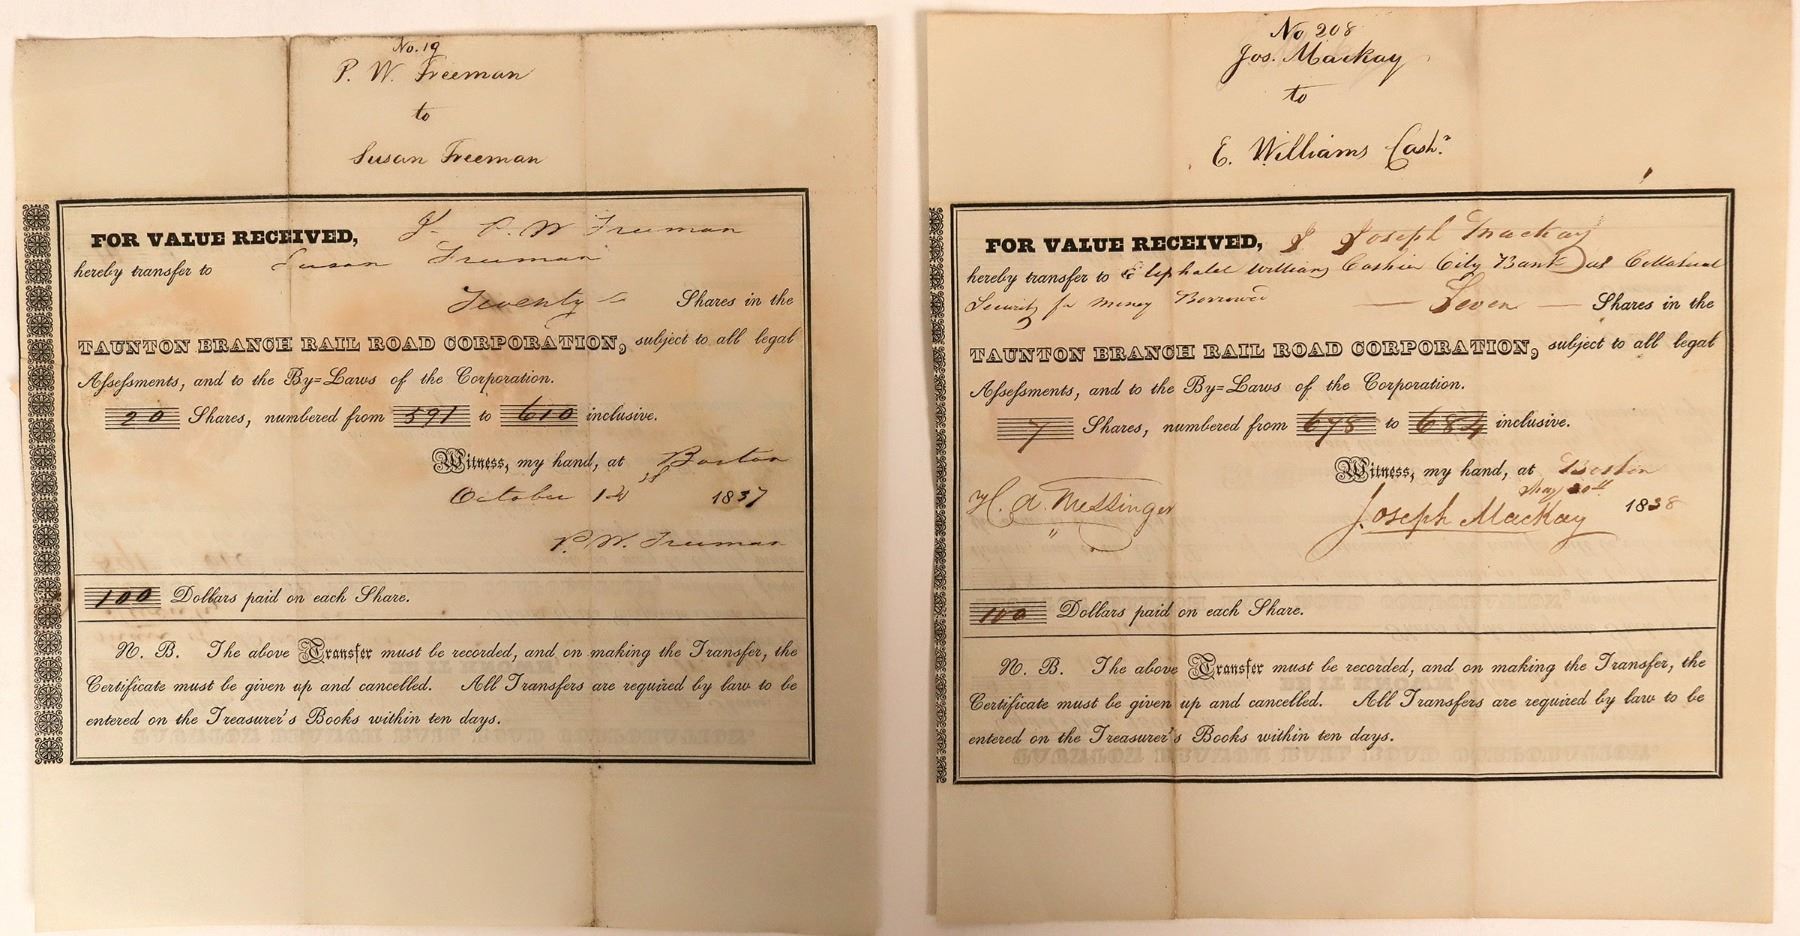 No. 19
P. W. Freeman
to
Susan Freeman
FOR VALUE RECEIVED, I P. W Freeman
hereby transfer to Susan Freeman
Twenty Shares in the
TAUNTON BRANCH RAIL ROAD CORPORATION, subject to all legal
Assessments, and to the By=Laws of the Corporation.
20 Shares, numbered from 591 to 610 inclusive.
Witness, my hand, at Boston
October 1837
P. W. Freeman
100 Dollars paid on each Share.
N. B. The above Transfer must be recorded, and on making the Transfer, the
Certificate must be given up and cancelled. All Transfers are required by law to be
entered on the Treasurer's Books within ten days.
No 208
Jos. Mackay
to
E. Williams Cash.r
FOR VALUE RECEIVED, I Joseph Mackay
hereby transfer to Eliphalet Williams Cashier City Bank as Collateral
Security for Money Borrowed — Seven — Shares in the
TAUNTON BRANCH RAIL ROAD CORPORATION, subject to all legal
Assessments, and to the By=Laws of the Corporation.
7 Shares, numbered from 678 to 684 inclusive.
Witness, my hand, at Boston
May 30th 1838
H. A. Messinger Joseph Mackay
100 Dollars paid on each Share.
N. B. The above Transfer must be recorded, and on making the Transfer, the
Certificate must be given up and cancelled. All Transfers are required by law to be
entered on the Treasurer's Books within ten days.